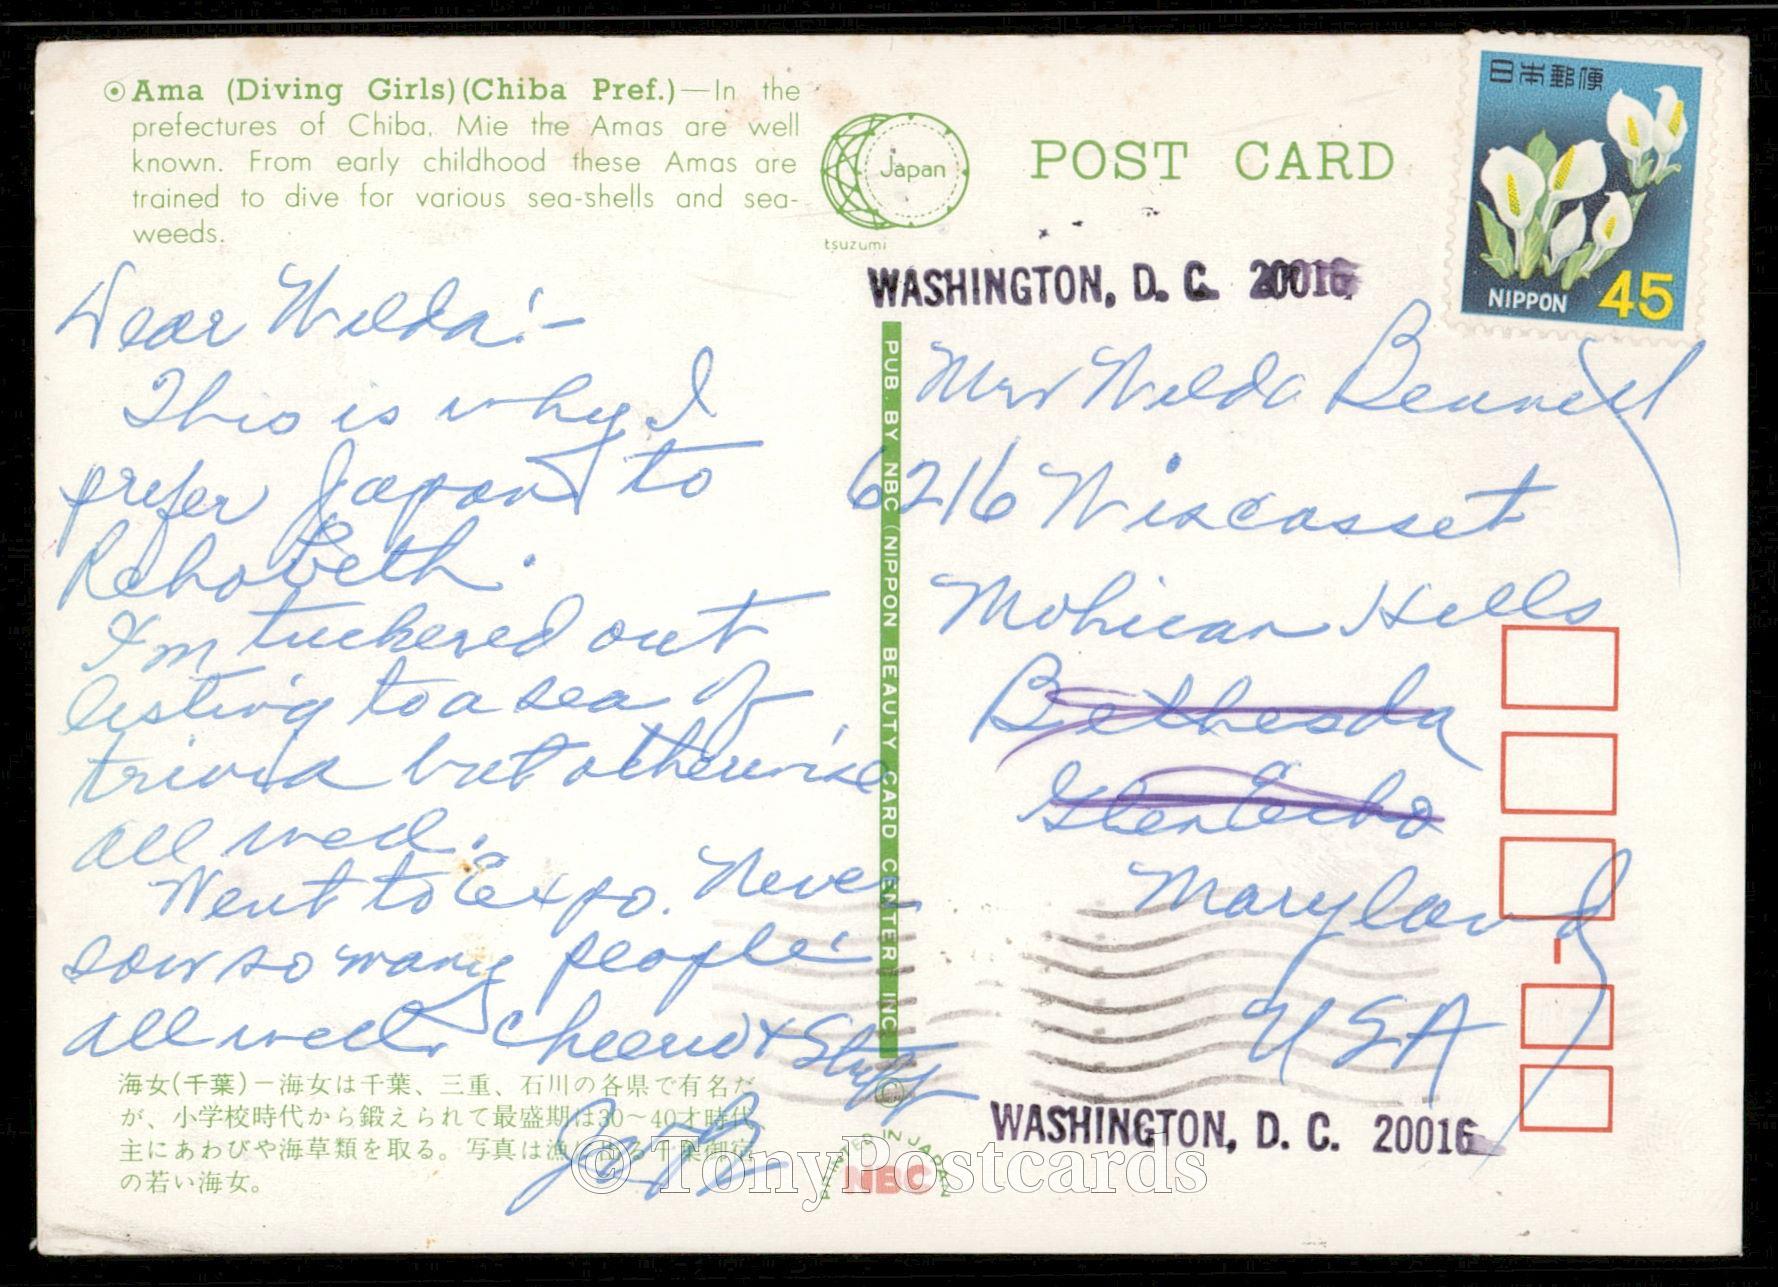 Ama (Diving Girls) (Chiba Pref.)—In the
prefectures of Chiba, Mie the Amas are well
known. From early childhood these Amas are
trained to dive for various sea-shells and sea-
weeds.
Japan
tsuzumi
POST CARD
日本郵便
NIPPON 45
WASHINGTON, D. C. 20016
Dear Wilda:-
This is why I
prefer Japan to
Rehobeth.
I'm tuckered out
listing to a sea of
trivia but otherwise
all well.
Went to Expo. Never
saw so many people.
All well. Cheerio & Stuff
PUB. BY NBC (NIPPON BEAUTY CARD CENTER) INC.
Mrs Wilda Bennett
6216 Wiscasset
Mohican Hills
Bethesda
Glen Echo
Maryland
USA
WASHINGTON, D. C. 20016
海女(千葉)－海女は千葉、三重、石川の各県で有名だ
が、小学校時代から鍛えられて最盛期は30～40才時代
主にあわびや海草類を取る。写真は漁に出る千葉御宿
の若い海女。
PRINTED IN JAPAN
NBC
© TonyPostcards